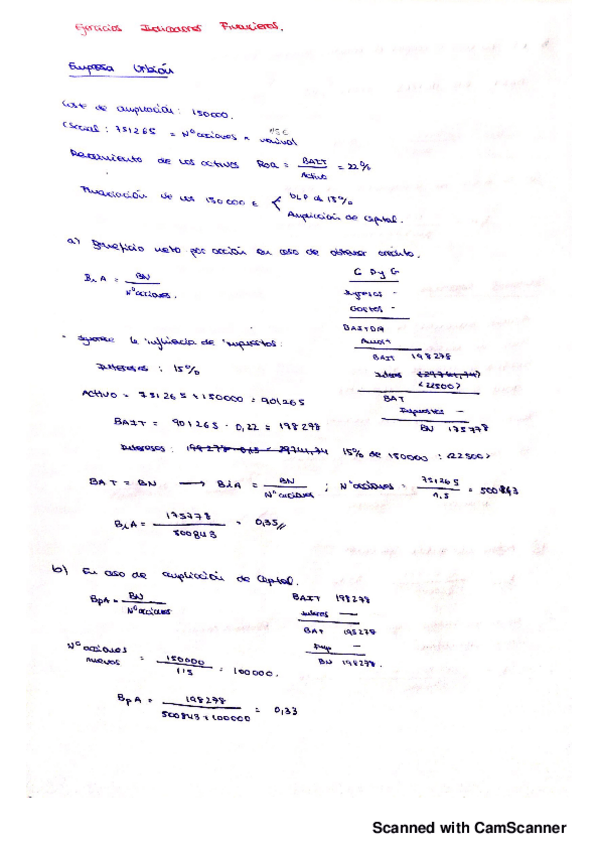 Ejercicios Indicadores Financieros.
Empresa Urbión
Coste de ampliación: 150000.
CSocial: 751265 = Nº acciones × 1,5€ vnominal
Rendimiento de los activos ROA = BAIT / Activo = 22%
Financiación de los 150000 € < DLP al 15%
Ampliación de Capital.
a) Beneficio neto por acción en caso de obtener crédito.
BxA = BN / Nº acciones.
G P y G
Ingresos -
Gastos -
BAITDA
Amort
BAIT 198278
Inter (29741,74)
(22500)
BAT
Impuestos -
BN 175778
Ignorar la influencia de impuestos:
Intereses: 15%
Activo = 751265 + 150000 = 901265
BAIT = 901265 · 0,22 = 198278
Intereses: 198278 · 0,15 = 29741,74 15% de 150000: (22500)
BAT = BN → BxA = BN / Nº acciones ; Nº acciones = 751265 / 1,5 = 500843
BxA = 175778 / 500843 = 0,35//
b) En caso de ampliación de Capital.
BpA = BN / Nº acciones
BAIT 198278
Interes —
BAT 198278
Imp —
BN 198278.
Nº acciones nuevos = 150000 / 1,5 = 100000.
BpA = 198278 / 500843 + 100000 = 0,33
Scanned with CamScanner